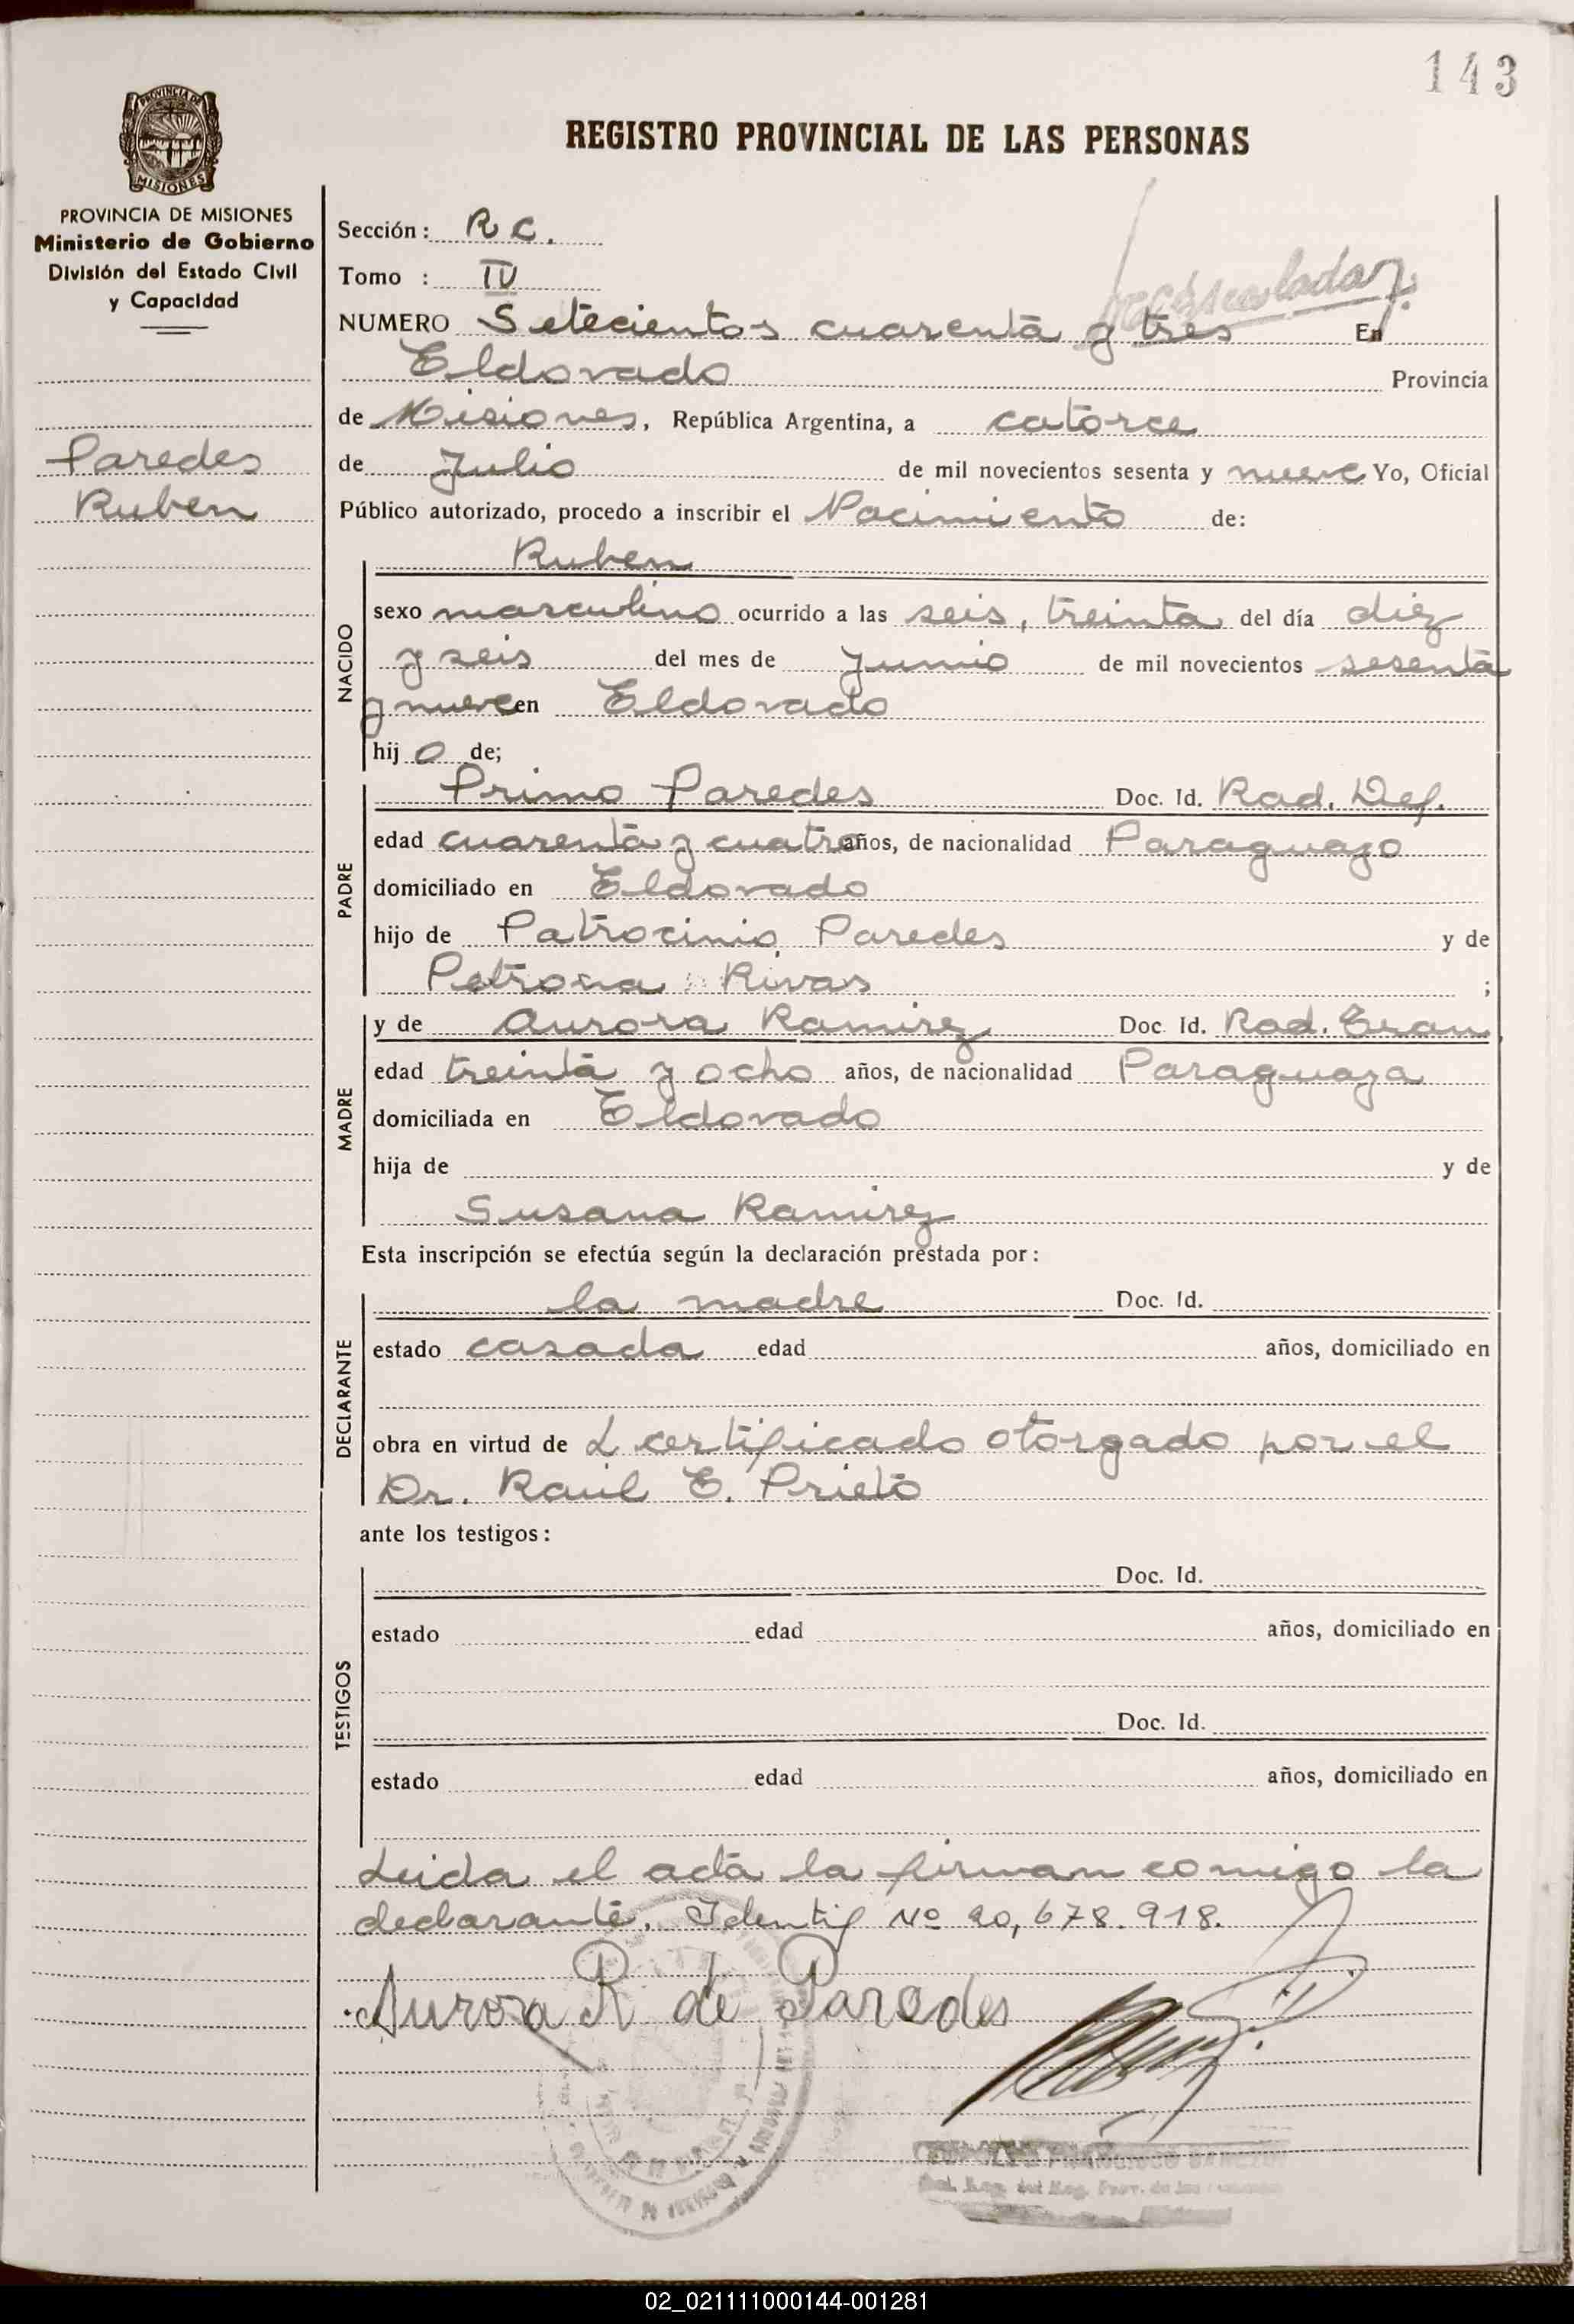 143
REGISTRO PROVINCIAL DE LAS PERSONAS
PROVINCIA DE MISIONES
PROVINCIA DE MISIONES
Ministerio de Gobierno
División del Estado Civil
y Capacidad
Paredes
Ruben
Sección: R C.
Tomo : IV
NUMERO Setecientos cuarenta y tres En
Eldorado Provincia
de Misiones, República Argentina, a catorce
de Julio de mil novecientos sesenta y nueve Yo, Oficial
Público autorizado, procedo a inscribir el Nacimiento de:
Ruben
NACIDO
sexo masculino ocurrido a las seis, treinta del día diez
y seis del mes de Junio de mil novecientos sesenta
y nueve en Eldorado
hij o de;
PADRE
Primo Paredes Doc. Id. Rad. Def.
edad cuarenta y cuatro años, de nacionalidad Paraguayo
domiciliado en Eldorado
hijo de Patrocinio Paredes y de
Petrona Rivas ;
MADRE
y de Aurora Ramirez Doc. Id. Rad.
edad treinta y ocho años, de nacionalidad Paraguaya
domiciliada en Eldorado
hija de y de
Susana Ramirez
Esta inscripción se efectúa según la declaración prestada por:
DECLARANTE
la madre Doc. Id.
estado casada edad años, domiciliado en
obra en virtud de L certificado otorgado por el
Dr. Raúl E. Prieto
ante los testigos:
TESTIGOS
Doc. Id.
estado edad años, domiciliado en
Doc. Id.
estado edad años, domiciliado en
Leida el acta la firman comigo la
declarante. Identif Nº 20,678.918.
Aurora R. de Paredes
02_021111000144-001281